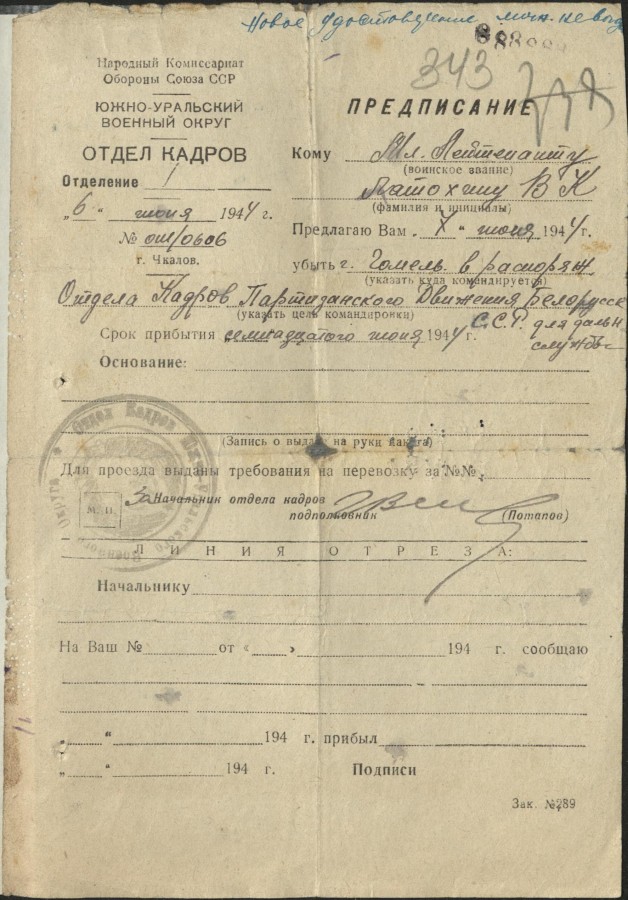 Новое удостоверение личн. не выд
343
Народный Комиссариат
Обороны Союза ССР
ЮЖНО-УРАЛЬСКИЙ
ВОЕННЫЙ ОКРУГ
ОТДЕЛ КАДРОВ
Отделение 1
„6" июня 1944 г.
№ от/0606
г. Чкалов.
ПРЕДПИСАНИЕ
Кому Мл. Лейтенанту
(воинское звание)
Латохину В К
(фамилия и инициалы)
Предлагаю Вам „ " июня 1944 г.
убыть г. Гомель в распоряж
(указать куда командируется)
Отдела Кадров Партизанского Движения Белорусск
(указать цель командировки)
С.С.Р. для дальн
службы
Срок прибытия семнадцатого июня 1944 г.
Основание:
(Запись о выдаче на руки пакета)
Для проезда выданы требования на перевозку за №№
М. П.
За Начальник отдела кадров
подполковник (Потапов)
Отдел Кадров Южно-Уральского Военного Округа
ЛИНИЯ ОТРЕЗА:
Начальнику
На Ваш № от « » 194 г. сообщаю
„ " 194 г. прибыл
„ " 194 г. Подписи
Зак. № 289